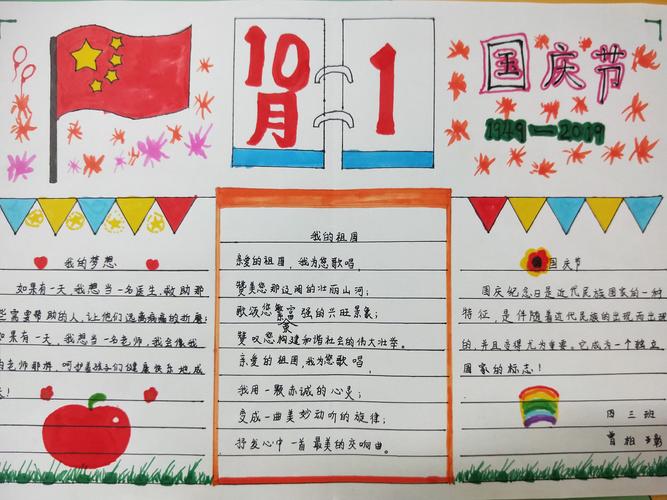 10
月
1
国庆节
1949—2019
我的梦想
如果有一天,我想当一名医生,救助那
些需要帮助的人,让他们远离病痛的折磨;
如果有一天,我想当一名老师,我会像我
的老师那样,呵护着孩子们健康快乐地成
我的祖国
亲爱的祖国,我为您歌唱,
赞美您那辽阔的壮丽山河;
歌颂您繁富强的兴旺景象;
荣
赞叹您构建和谐社会的伟大壮举。
亲爱的祖国,我为您歌唱,
我用一颗赤诚的心灵;
变成一曲美妙动听的旋律;
抒发心中一首最美的交响曲。
国庆节
国庆纪念日是近代民族国家的一种
特征,是伴随着近代民族的出现而出现
的,并且变得尤为重要。它成为一个独立
国家的标志!
四三班